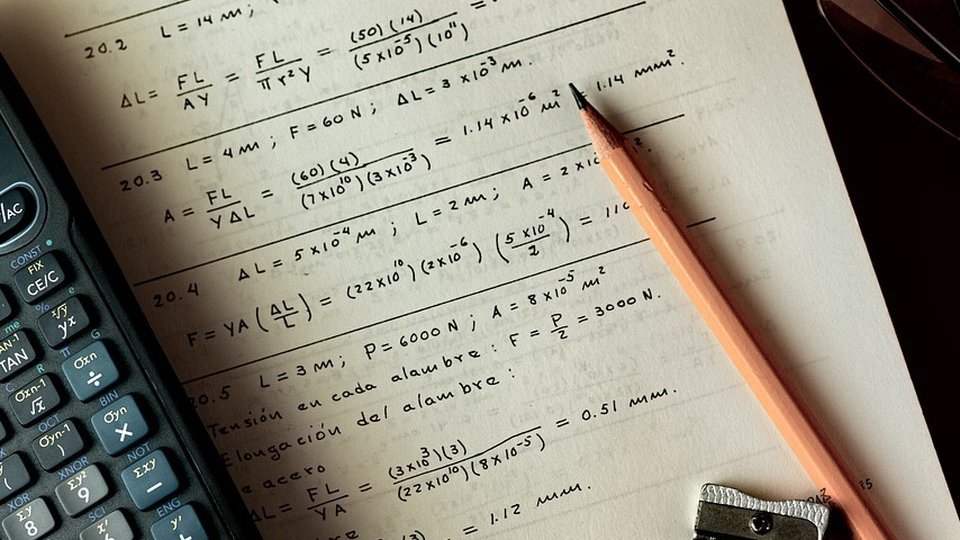 20.2 L = 14 m;
ΔL = FL/AY = FL/πr²Y = (50)(14)/(5×10⁻⁵)(10¹¹) =
20.3 L = 4 m; F = 60 N; ΔL = 3×10⁻³ m.
A = FL/YΔL = (60)(4)/(7×10¹⁰)(3×10⁻³) = 1.14×10⁻⁶ m² = 1.14 mm².
20.4 ΔL = 5×10⁻⁴ m; L = 2 m; A = 2×10
F = YA(ΔL/L) = (22×10¹⁰)(2×10⁻⁶)(5×10⁻⁴/2) = 110
20.5 L = 3 m; P = 6000 N; A = 8×10⁻⁵ m²
Tensión en cada alambre: F = P/2 = 3000 N.
Elongación del alambre:
e acero
ΔL = FL/YA = (3×10³)(3)/(22×10¹⁰)(8×10⁻⁵) = 0.51 mm.
= 1.12 mm.
/AC
CONST
FIX
CE/C
%
e
ˣ√y
yˣ
me
TAN
π
G
σxn
÷
R
σxn-1
√x
OCT
σyn-1
)
BIN
σyn
×
(
XNOR
Σx²
9
NOT
Σxy
−
XOR
8
SCI
ENG
y'